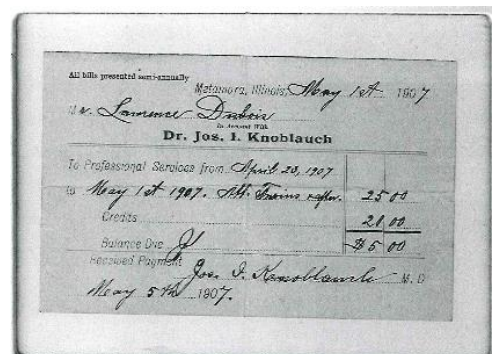 All bills presented semi-annually
Metamora, Illinois, May 1st 1907
Mr. Lawrence Dubois
In Account With
Dr. Jos. I. Knoblauch
To Professional Services from April 23, 1907
to May 1st 1907. Att. Twins + after. 25 00
Credits 20 00
Balance Due $5 00
Received Payment
Jos. I. Knoblauch M. D
May 5th 1907.